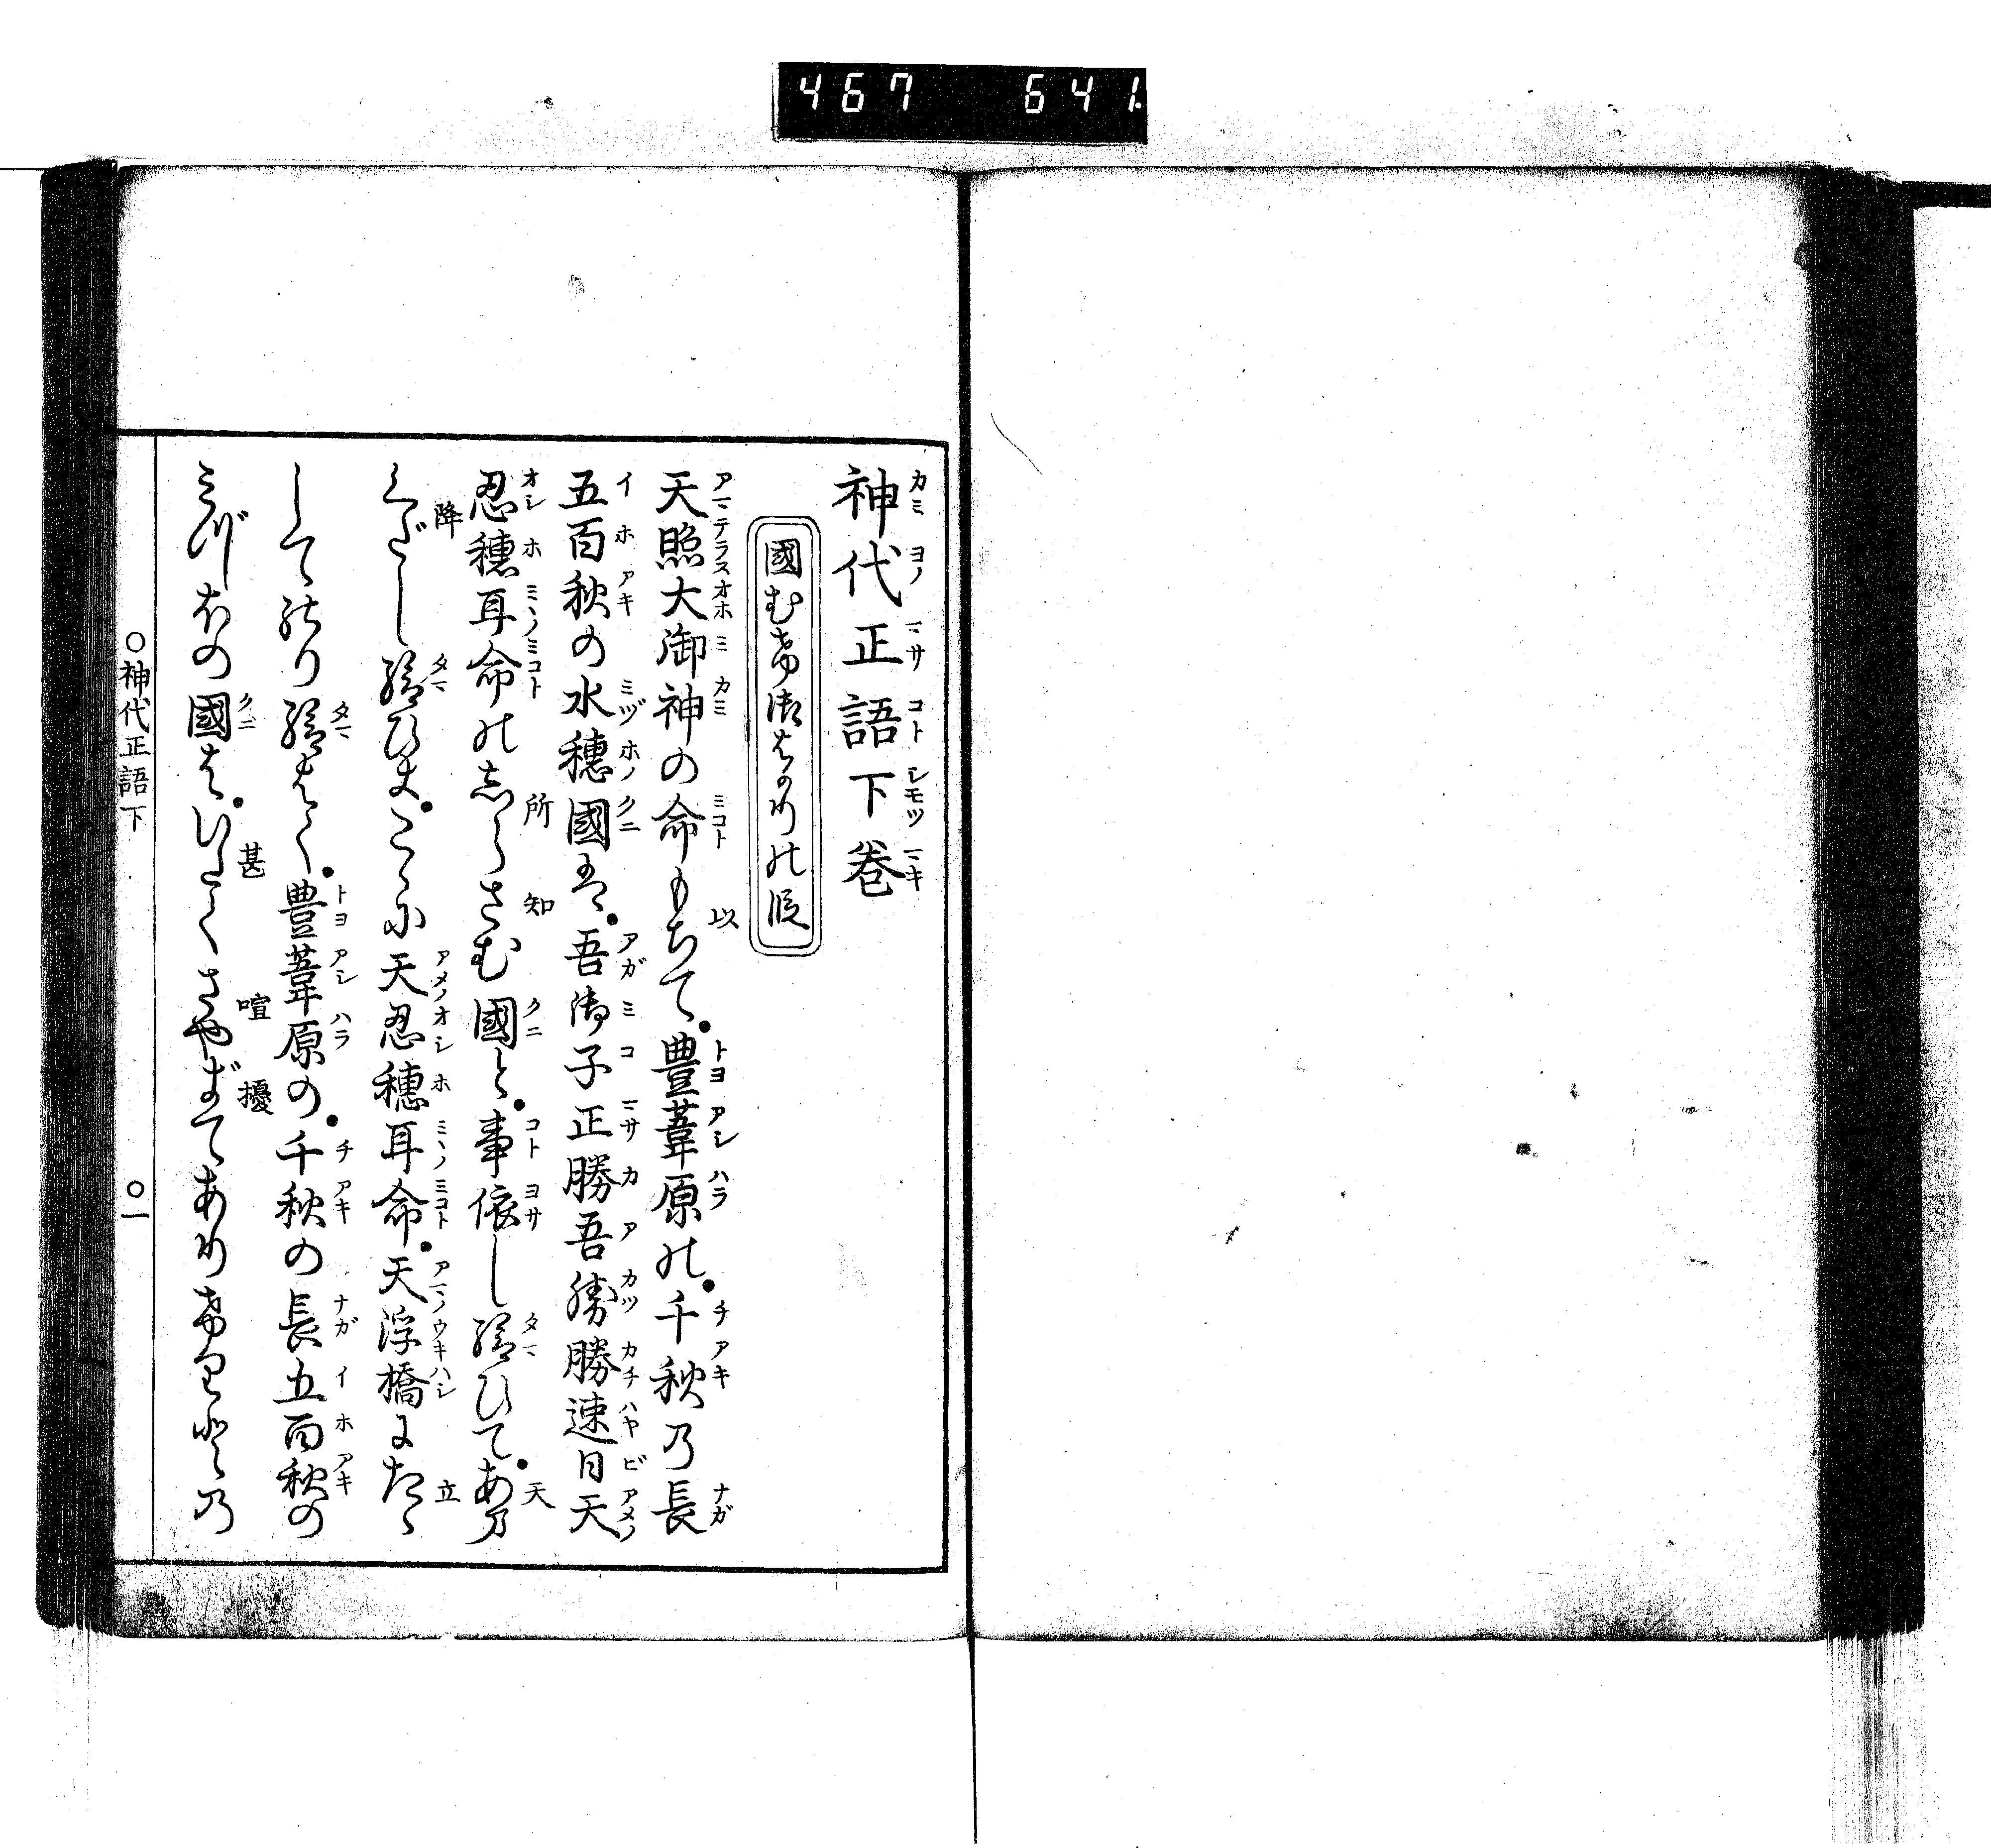 467 641
神代正語下巻
國むけ御はかりの段
天照大御神の命もちて豊葦原の千秋乃長
五百秋の水穂國は吾御子正勝吾勝勝速日天
忍穂耳命のしらさむ國と事依し給ひてあま
くだし給ひきこゝに天忍穂耳命天浮橋にたゝ
してのり給はく豊葦原の千秋の長五百秋の
みづほの國はいたくさやぎてありけりとの
○神代正語下 ○一